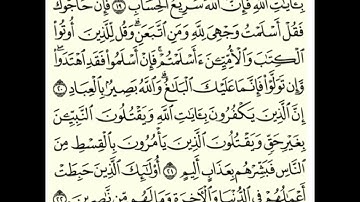 بِـَٔايَٰتِ ٱللَّهِ فَإِنَّ ٱللَّهَ سَرِيعُ ٱلْحِسَابِ ١٩ فَإِنْ حَآجُّوكَ
فَقُلْ أَسْلَمْتُ وَجْهِىَ لِلَّهِ وَمَنِ ٱتَّبَعَنِ ۗ وَقُل لِّلَّذِينَ أُوتُوا۟
ٱلْكِتَٰبَ وَٱلْأُمِّيِّـۧنَ ءَأَسْلَمْتُمْ ۚ فَإِنْ أَسْلَمُوا۟ فَقَدِ ٱهْتَدَوا۟ ۖ
وَّإِن تَوَلَّوْا۟ فَإِنَّمَا عَلَيْكَ ٱلْبَلَٰغُ ۗ وَٱللَّهُ بَصِيرٌۢ بِٱلْعِبَادِ ٢٠
إِنَّ ٱلَّذِينَ يَكْفُرُونَ بِـَٔايَٰتِ ٱللَّهِ وَيَقْتُلُونَ ٱلنَّبِيِّـۧنَ
بِغَيْرِ حَقٍّ وَيَقْتُلُونَ ٱلَّذِينَ يَأْمُرُونَ بِٱلْقِسْطِ مِنَ
ٱلنَّاسِ فَبَشِّرْهُم بِعَذَابٍ أَلِيمٍ ٢١ أُو۟لَٰٓئِكَ ٱلَّذِينَ حَبِطَتْ
أَعْمَٰلُهُمْ فِى ٱلدُّنْيَا وَٱلْءَاخِرَةِ وَمَا لَهُم مِّن نَّٰصِرِينَ ٢٢